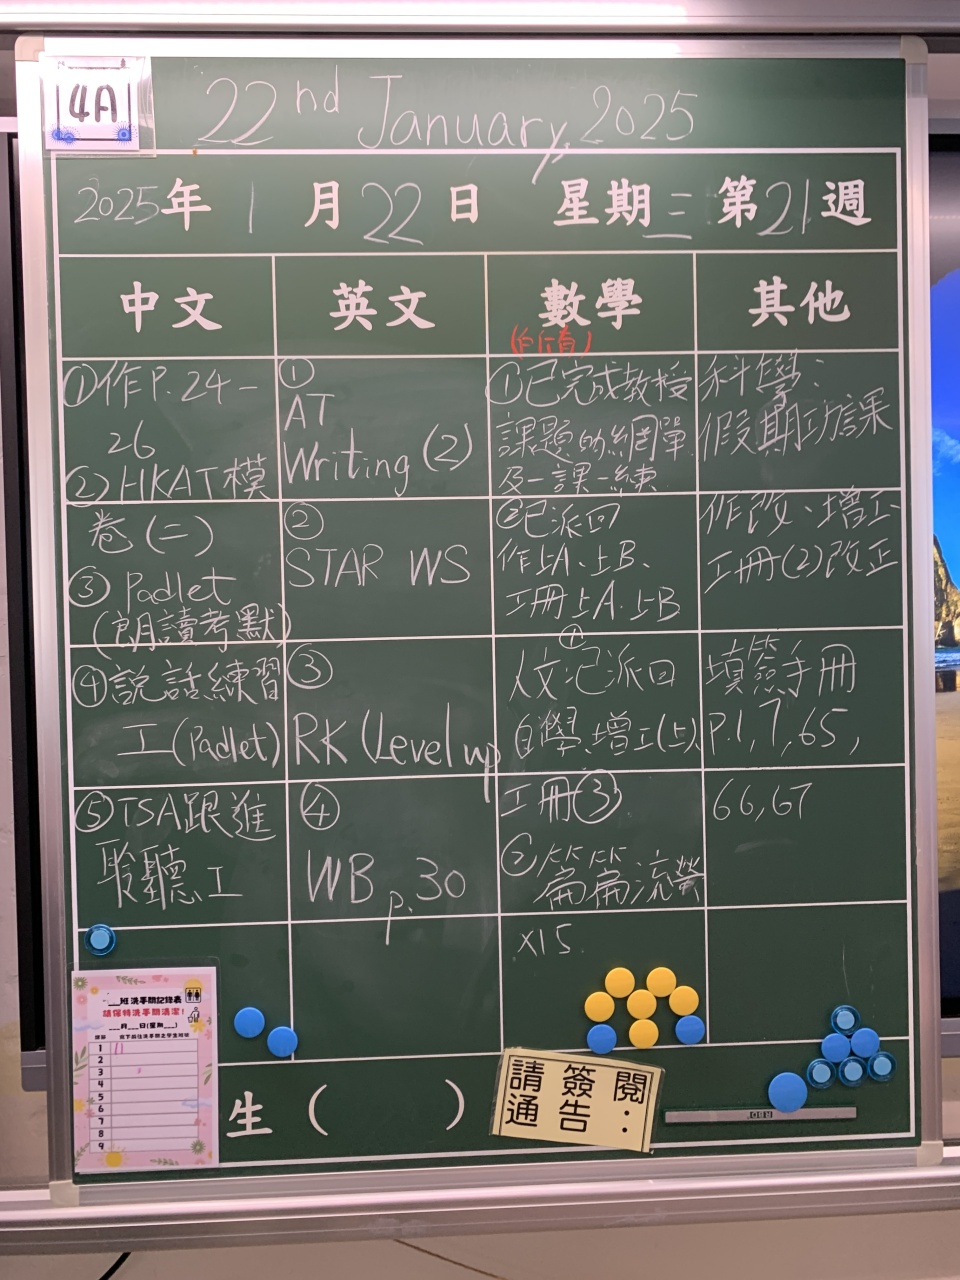 4A
22nd January, 2025
2025年1月22日 星期三 第21週
中文 英文 數學 其他
①作P.24-
26
②HKAT模
卷(二)
③Padlet
(朗讀考默)
④說話練習
工(Padlet)
⑤TSA跟進
聆聽工
①
AT
Writing (2)
②
STAR WS
③
RK (Level up
④
WB p.30
①已完成教授
課題的網單
及一課一練
②已派回
作上A、上B、
工冊上A.上B
人文:已派回
自學、增工(上)、
工冊(3)
②篇篇流螢
x15
科學:
假期功課
作改、增工
工冊(2)改正
填簽手冊
P.1,7,65,
66,67
班洗手間記錄表
請保持洗手間清潔!
___月___日(星期___)
1
2
3
4
5
6
7
8
9
生( )
請簽閱
通告: